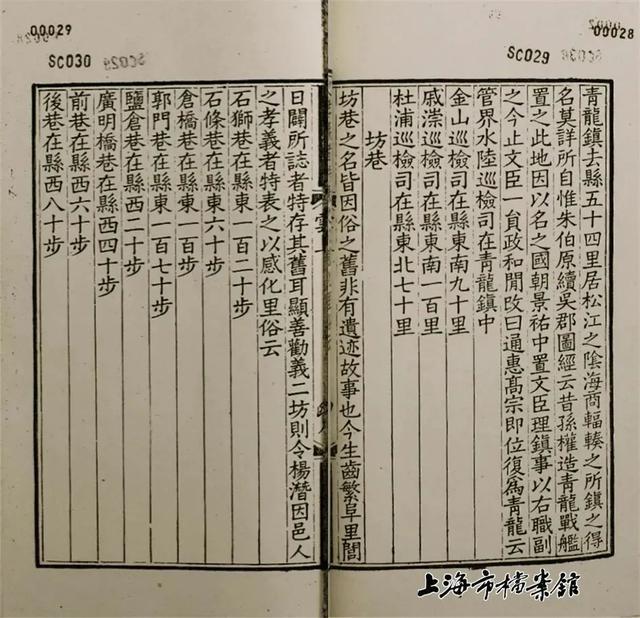 00029
SC030
00028
SC029
青龍鎮去縣五十四里居松江之陰海商輻輳之所鎮之得
名莫詳所自惟朱伯原續吳郡圖經云昔孫權造青龍戰艦
置之此地因以名之國朝景祐中置文臣理鎮事以右職副
之今止文臣一員政和閒改曰通惠髙宗即位復為青龍云
管界水陸巡檢司在青龍鎮中
金山巡檢司在縣東南九十里
戚漴巡檢司在縣東南一百里
杜浦巡檢司在縣東北七十里
坊巷
坊巷之名皆因俗之舊非有遺迹故事也今生齒繁阜里閭
日闢所誌者特存其舊耳顯善勸義二坊則令楊潛因邑人
之孝義者特表之以感化里俗云
石獅巷在縣東一百二十步
石條巷在縣東六十步
倉橋巷在縣東一百步
郭門巷在縣東一百七十步
鹽倉巷在縣西二十步
廣明橋巷在縣西四十步
前巷在縣西六十步
後巷在縣西八十步
上海市檔案館